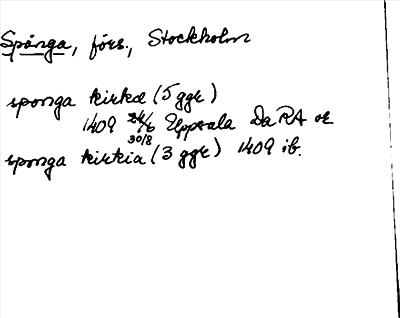 Spånga, förs., Stockholm
sponga kirkæ (5 ggr)
1409 24/6 30/8 Uppsala DaRA or
sponga kirkia (3 ggr) 1409 ib.